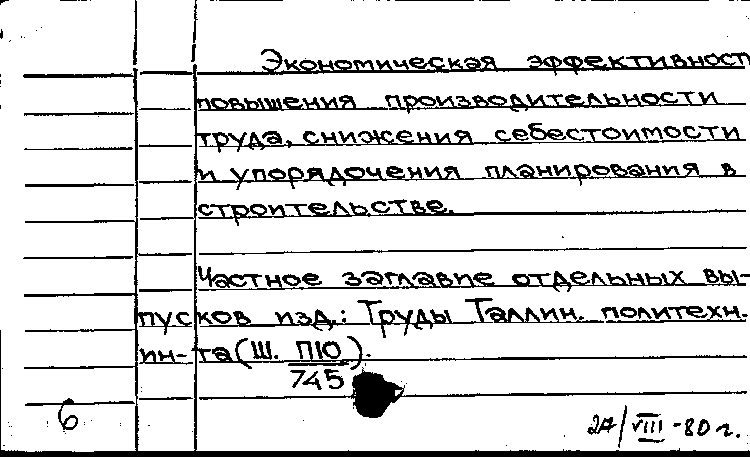 Экономическая эффективност
повышения производительности
труда, снижения себестоимости
и упорядочения планирования в
строительстве.
Частное заглавие отдельных вы-
пусков изд.: Труды Таллин. политехн.
ин-та (Ш. П10
745).
6
27/VIII-80 г.